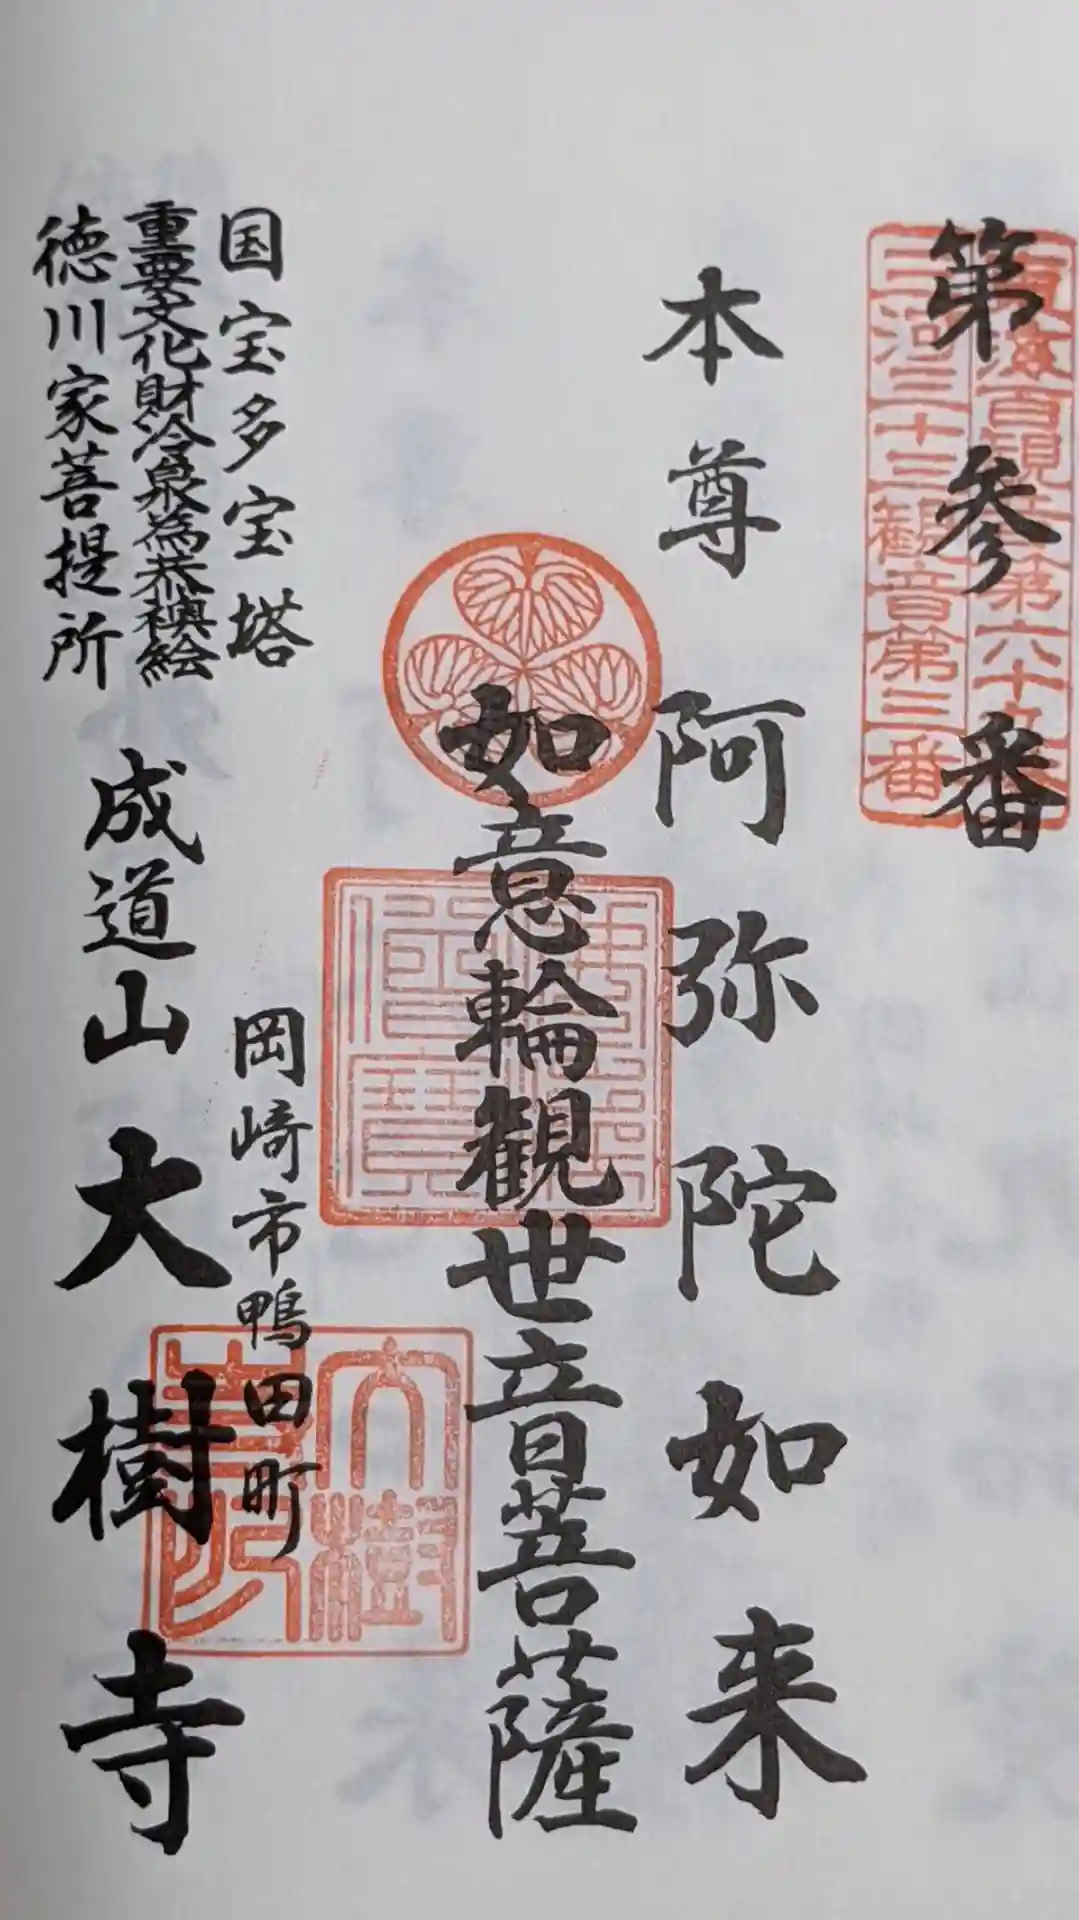 第参番
東海百観音第六十五番
三河三十三観音第三番
本尊 阿弥陀如来
如意輪観世音菩薩
佛法僧寶
国宝多宝塔
重要文化財冷泉為恭襖絵
徳川家菩提所
岡崎市鴨田町
成道山 大樹寺
大樹寺印